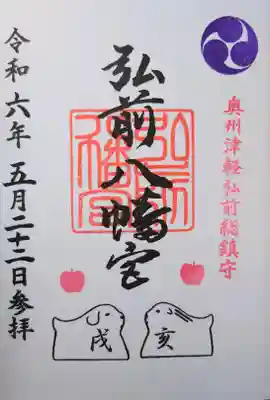 奥州津軽弘前総鎮守
弘前八幡宮
弘前八幡宮
令和六年 五月二十二日参拝
戌 亥